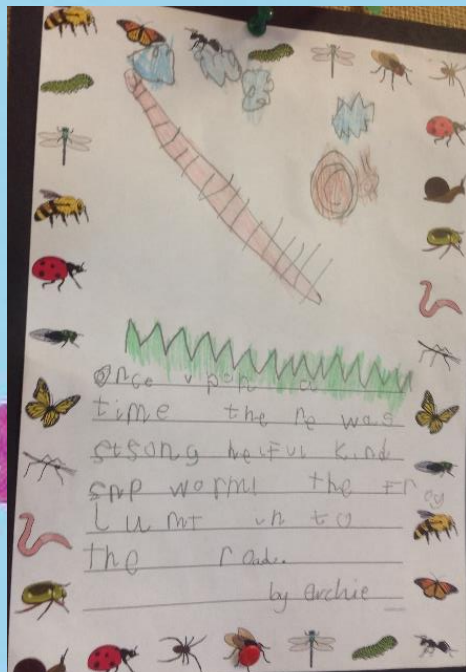 Once upon a
time there was
stsong helful kind
snp worml the frog
lumt in to
the roade.
by Archie